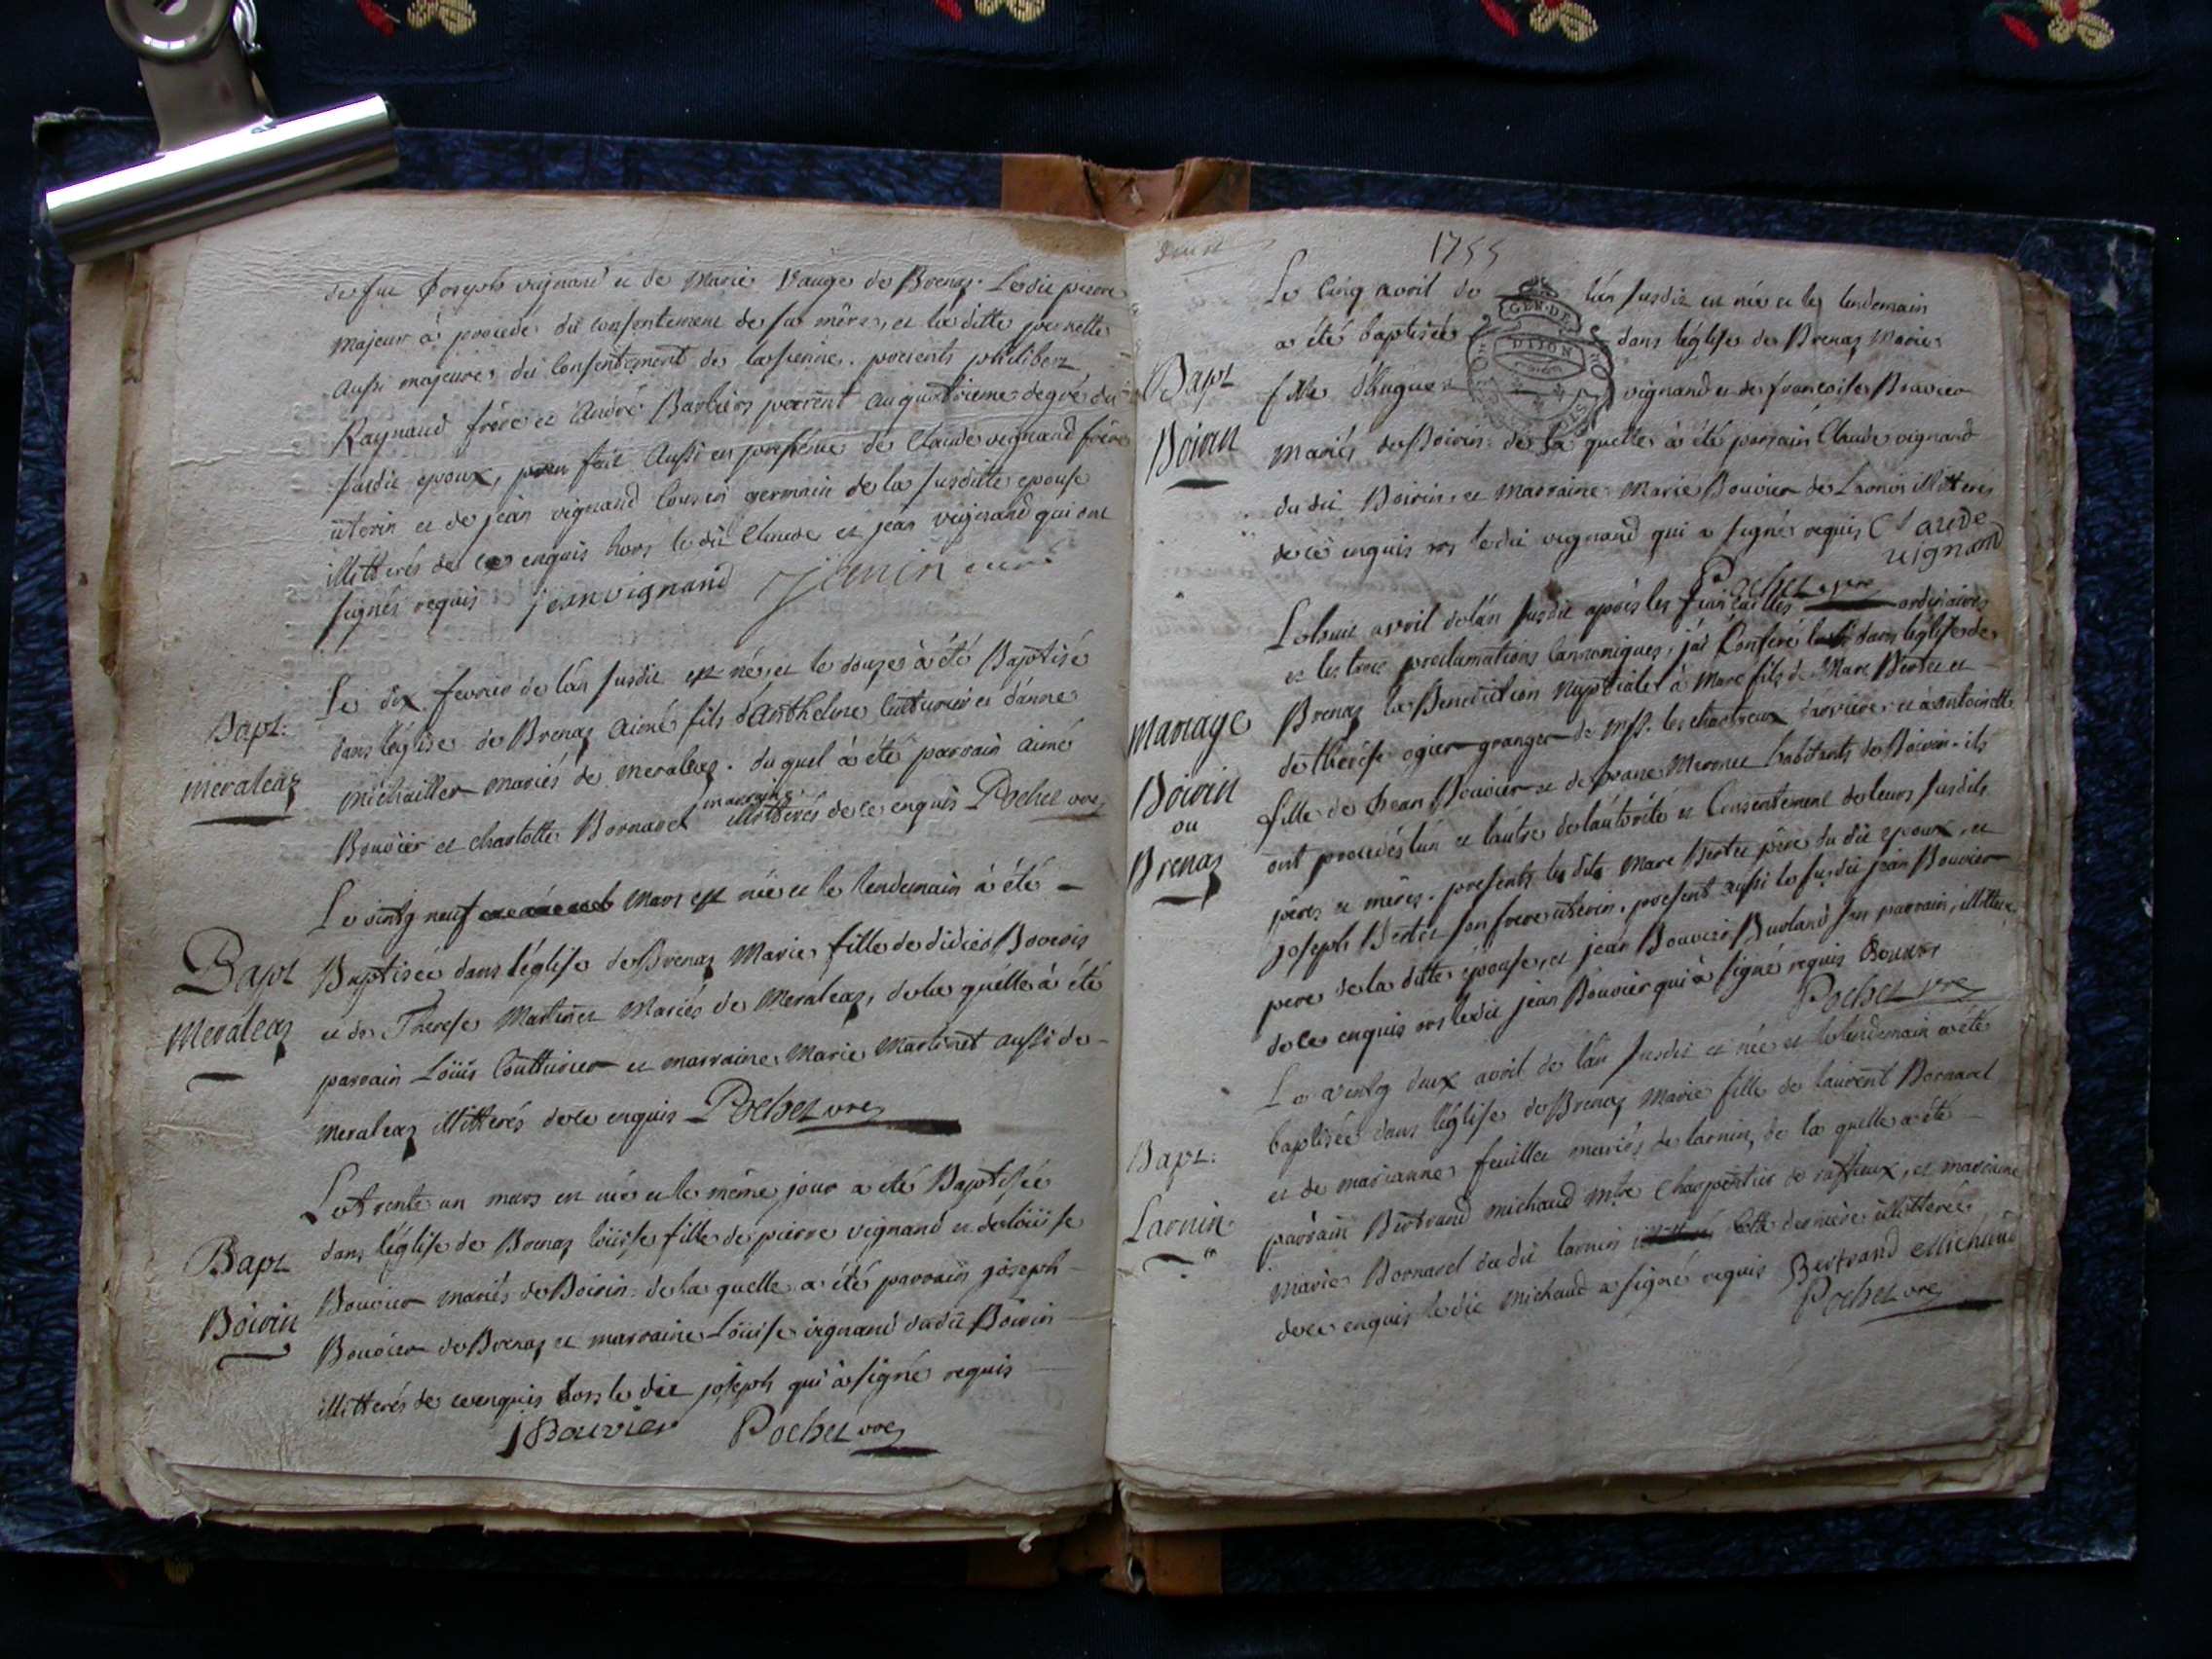 de feu Joseph vignand et de Marie Vauge de Brenaz. Ledit pierre
majeur à procedé du consentement de sa mère, et la ditte pernette
aussi majeure du consentement de la sienne. presents philibert
Raynaud frère et André Barbier parent au quatrieme degré du
susdit epoux, fait aussi en presence de Claude vignand frère
uterin et de jean vignand cousin germain de la susditte epouse
illitterés de ce enquis hors le dit Claude et jean vignand qui ont
signés requis jean vignand Jenin curé
Bapt:
meraleaz
Le dix fevrier de l'an susdit est né, et le douze à été Baptisé
dans l'église de Brenaz Aimé fils d'Anthelme Cutturier et d'anne
michailler mariés de meraleaz. du quel à été parrain aimé
Bouvier et charlotte Bornard marraine illitterés de ce enquis Pochet vre
Bapt
Meraleaz
Le vintg neuf Mars est née et le lendemain à été
Baptisée dans l'église de Brenaz Marie fille de didier
et de Therese Martinet Mariés de Meraleaz, de la quelle à été
parrain Loüis Coutturier et marraine Marie Martinet aussi de
meraleaz illitterés de ce enquis Pochet vre
Bapt
Boirin
Le trente un mars est née et le même jour a été Baptisée
dans l'église de Brenaz loüise fille de pierre vignand et de loüise
Bouvier mariés de Boirin. de la quelle a été parrain joseph
Bouvier de Brenaz et marraine Loüise vignand dudit Boirin
illitterés de ce enquis hors le dit joseph qui à signé requis
J Bouvier Pochet vre
1755
Bapt
Boirin
Le Cinq avril de GEN. DE l'an susdit est née et le lendemain
a été baptisée DIJON dans l'église de Brenaz Marie
fille d'hugue vignand et de françoise Bouvier
mariés de Boirin: de la quelle à été parrain Claude vignand
du dit Boirin, et Marraine Marie Bouvier de Larnin illitterés
de ce enquis le dit vignand qui a signé requis Claude
vignand
Pochet vre
Mariage
Boirin
ou
Brenaz
Le huit avril de l'an susdit après les fiançailles ordinaires
et les trois proclamations cannoniques, j'ai Conferé dans l'église de
Brenaz la Benediction Nuptiale à Marc fils de Marc Bertet et
de therèse ogier granger de mss. les chartreux d'arvière et à antoinette
fille de jean Bouvier et de habitants de Boirin. ils
ont procedés l'un et l'autre de l'autorité et Consentement de leurs susdits
pères et mères. presents les dits Marc Bertet père du dit epoux, et
joseph Bertet son frere uterin. present aussi le susdit jean Bouvier
pere de la ditte épouse, et jean Bouvier Burland son parrain, illitterés
de ce enquis le dit jean Bouvier qui à signé requis Bouvier
Pochet vre
Bapt:
Larnin
Le vintg deux avril de l'an susdit est née et le lendemain a été
baptisée dans l'église de Brenaz Marie fille de laurent Bornard
et de marianne feuillet mariés de larnin, de la quelle a été
parrain Bertrand michaud mtre Charpentier de ruffieux, et marraine
Marie Bornard du dit larnin Cette dernière illitterée
de ce enquis le dit michaud a signé requis Bertrand Michaud
Pochet vre